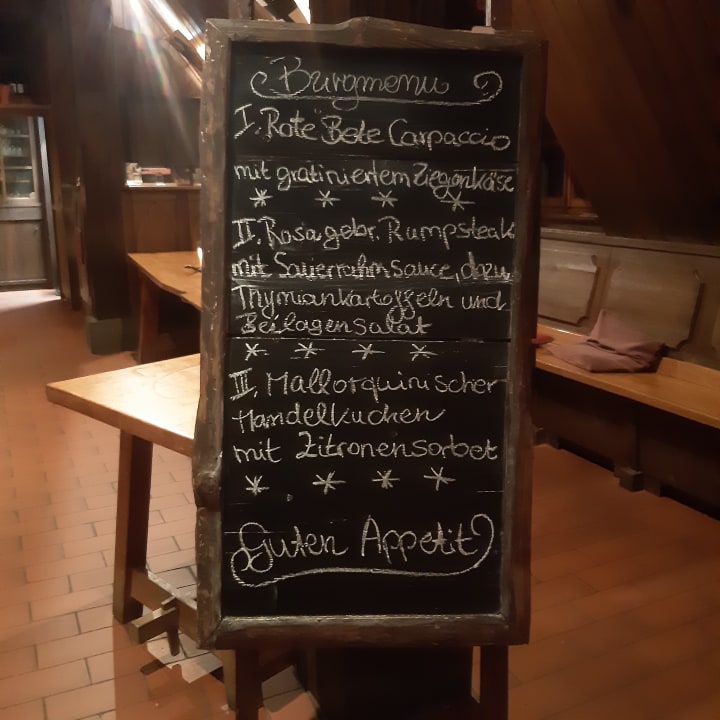 Burgmenu
I. Rote Bete Carpaccio
mit gratiniertem Ziegenkäse
* * * *
II. Rosa gebr. Rumpsteak
mit Sauerrahmsauce, dazu
Thymiankartoffeln und
Beilagensalat
* * * *
III. Mallorquinischer
Mandelkuchen
mit Zitronensorbet
* * * *
Guten Appetit